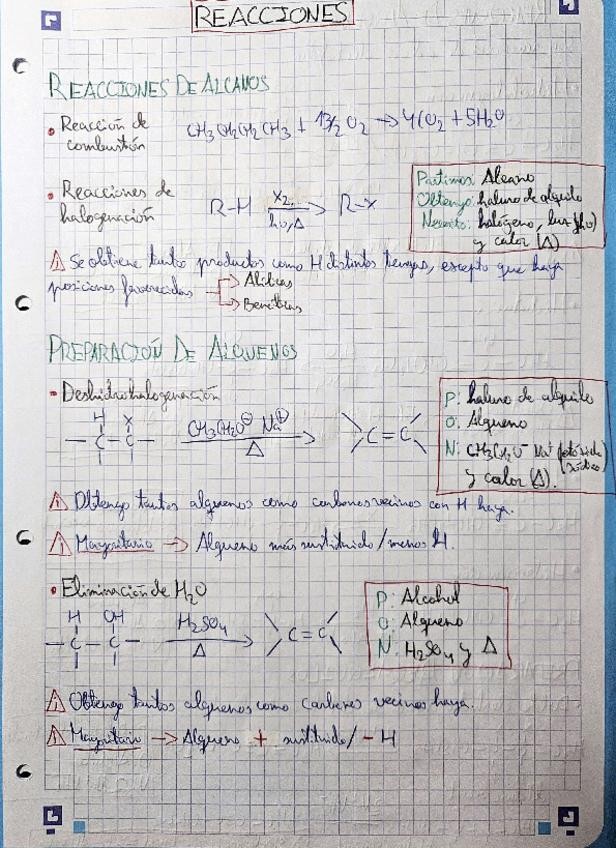 REACCIONES
REACCIONES DE ALCANOS
• Reacción de combustión
CH3CH2CH2CH3 + 13/2 O2 → 4CO2 + 5H2O
• Reacciones de halogenación
R-H X2, hν, Δ → R-X
Partimos: Alcano
Obtengo: haluro de alquilo
Necesito: halógeno, luz (hν)
y calor (Δ)
⚠ Se obtiene tantos productos como H distintos tengas, excepto que haya
posiciones favorecidas → Alílicas
→ Bencílicas
PREPARACIÓN DE ALQUENOS
• Deshidrohalogenación
H X
-C-C- CH3CH2O⊖ Na⊕ → C=C
Δ
P: haluro de alquilo
O: Alqueno
N: CH3CH2O⁻ Na⁺ (etóxido sódico)
y calor (Δ).
⚠ Obtengo tantos alquenos como carbonos vecinos con H haya.
⚠ Mayoritario → Alqueno más sustituido/menos H.
• Eliminación de H2O
H OH
-C-C- H2SO4 → C=C
Δ
P: Alcohol
O: Alqueno
N: H2SO4 y Δ
⚠ Obtengo tantos alquenos como carbonos vecinos haya.
⚠ Mayoritario → Alqueno + sustituido/ - H